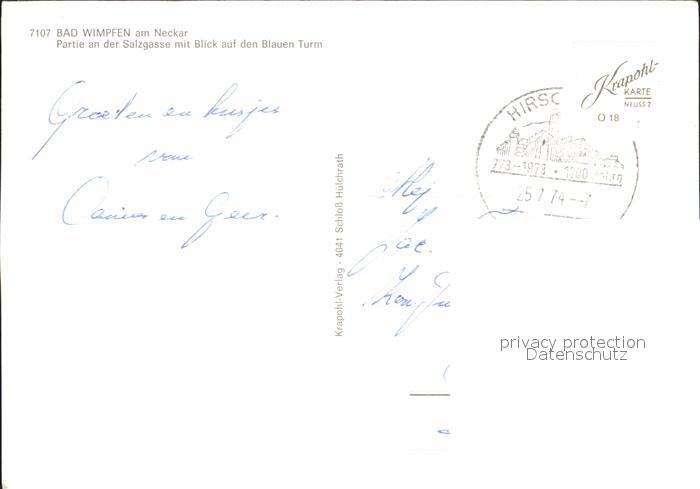 7107 BAD WIMPFEN am Neckar
Partie an der Salzgasse mit Blick auf den Blauen Turm
Groeten en kusjes
van
en Geer.
Krapohl-Verlag - 4041 Schloß Hülchrath
Mej
Jac.
HIRSC
773-1973 • 1200
25.7.74--7
Krapohl-
KARTE
NEUSS 2
O 18
privacy protection
Datenschutz